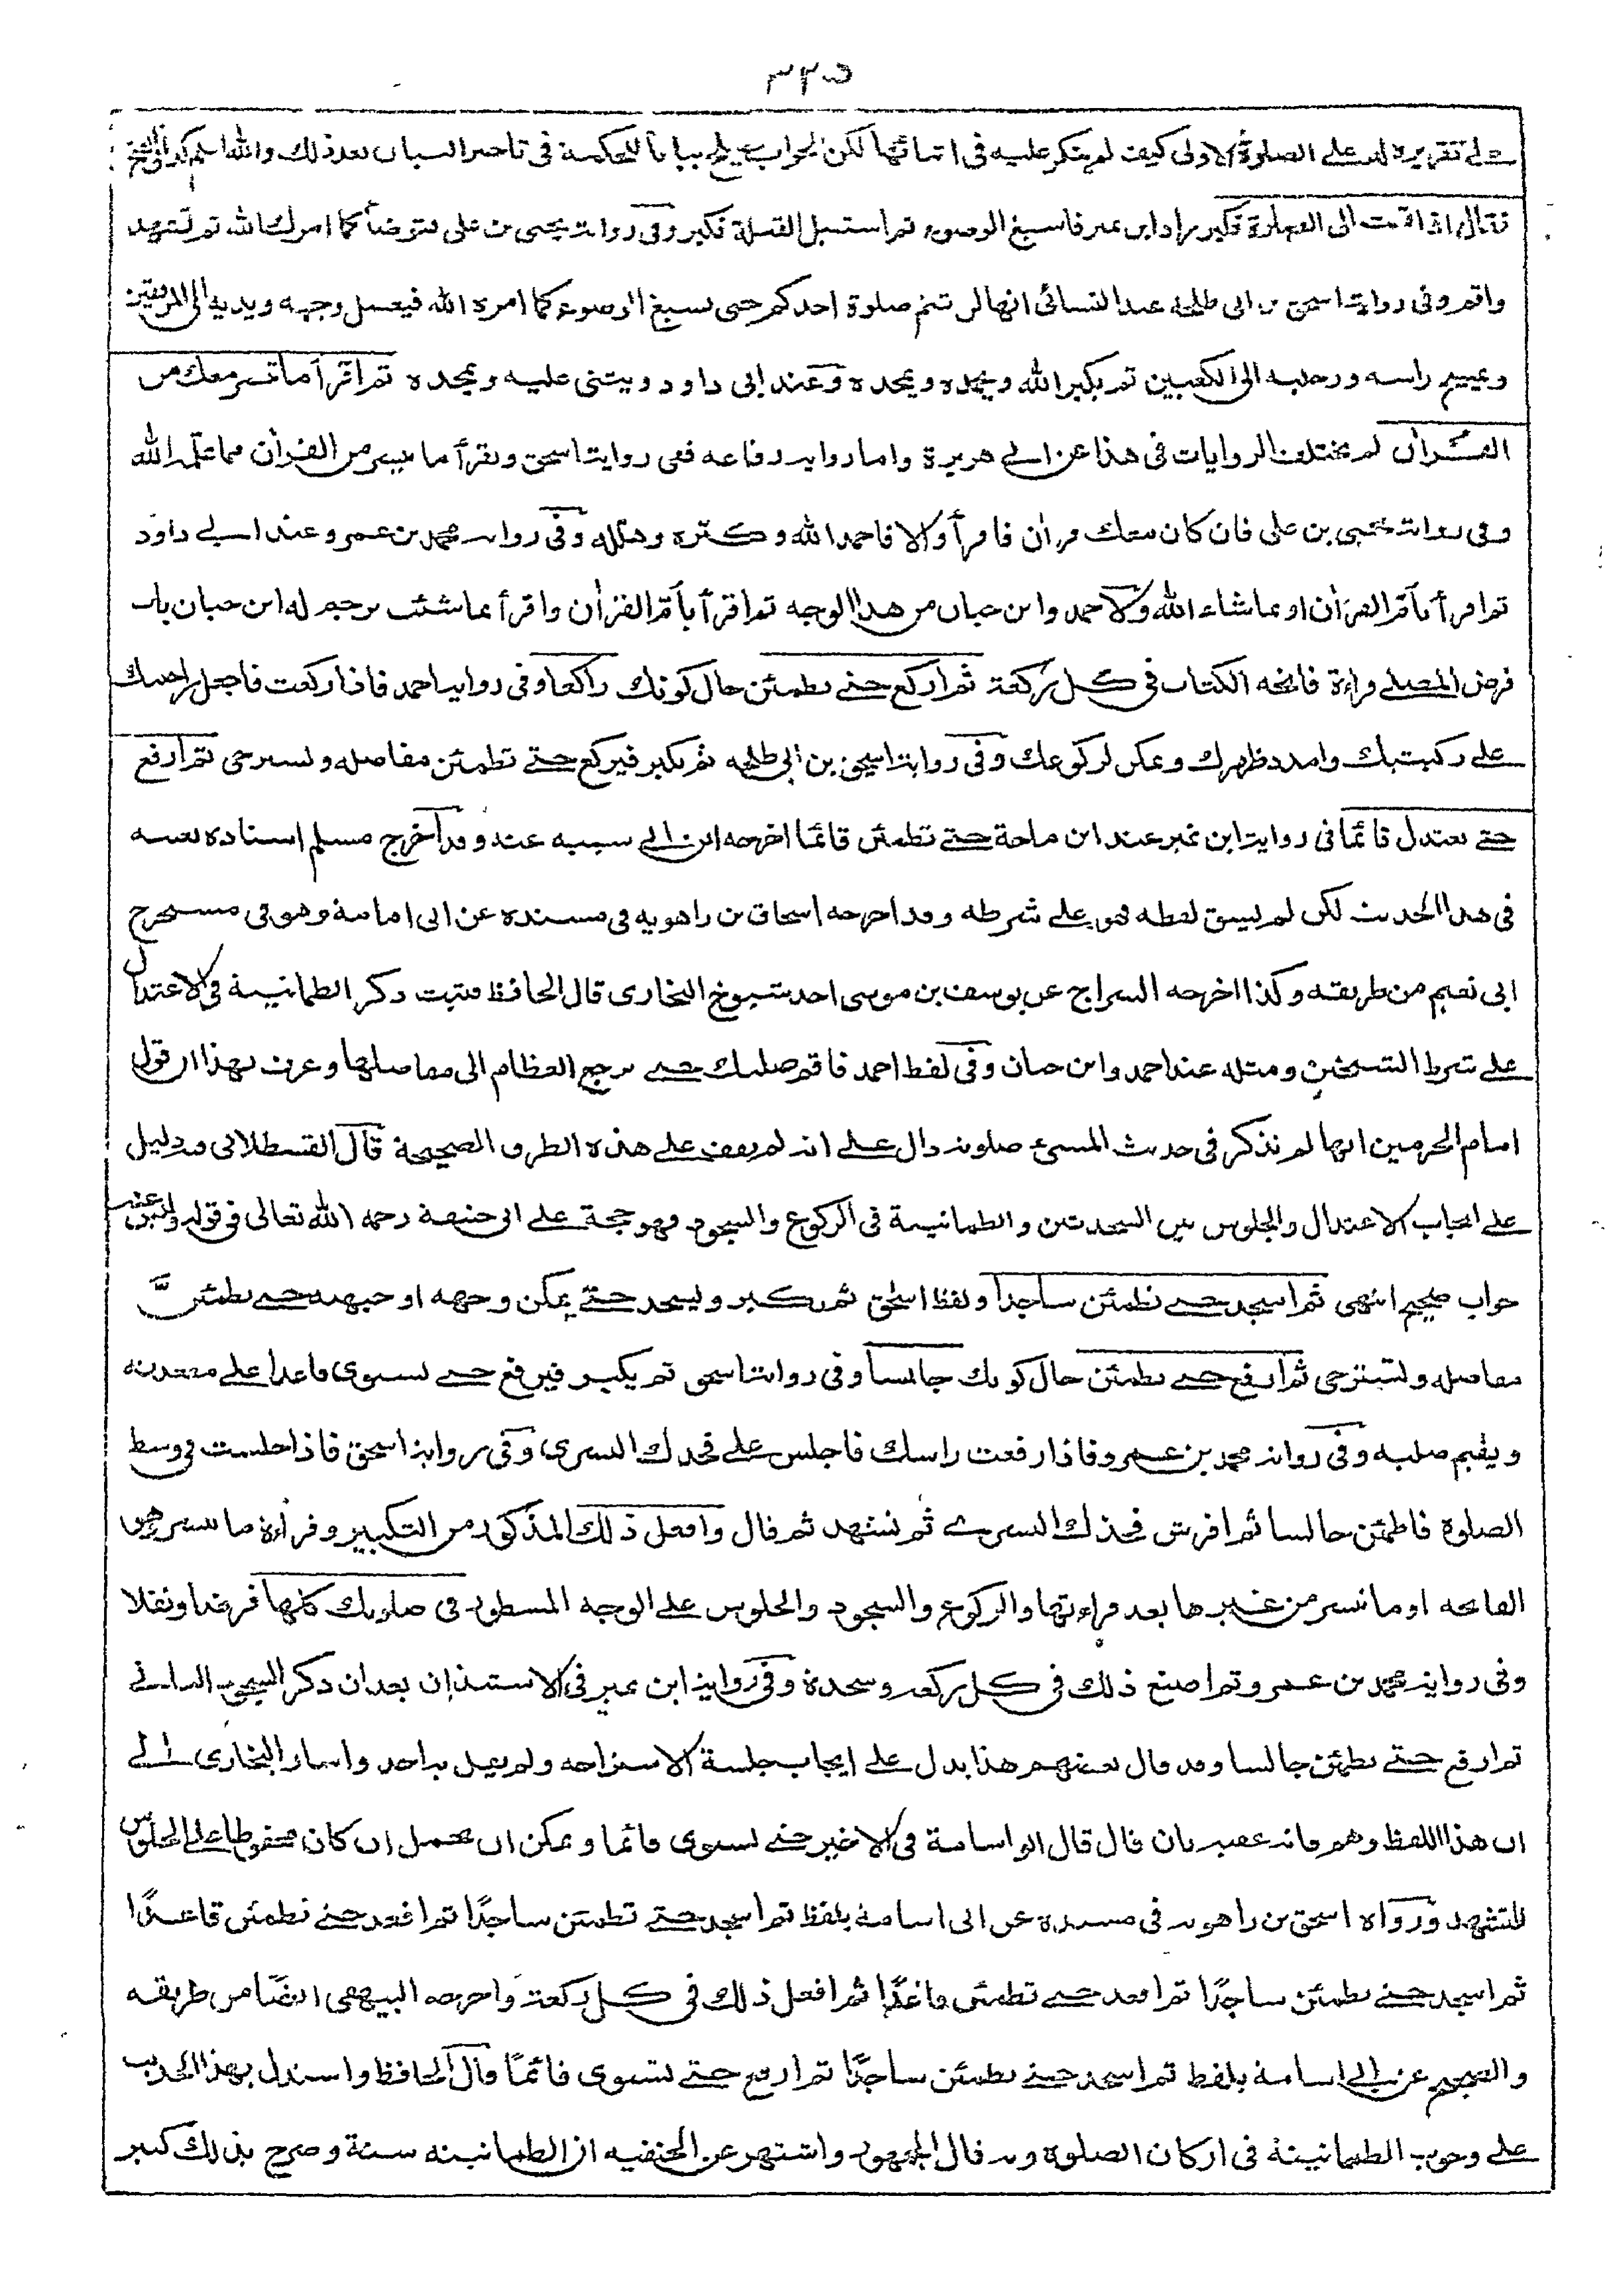 ٣٢٥
على تقريره له على الصلوة الاولى كيف لم ينكر عليه فى اثنائها لكن الجواب يصلح بيانا للحكمة فى تاخير البيان بعد ذلك والله اعلم كذا فى الفتح
فقال اذا قمت الى الصلوة فكبر زاد ابن نمير فاسبغ الوضوء ثم استقبل القبلة فكبر وفى رواية يحيى بن على فتوضأ كما امرك الله ثم تشهد
واقم وفى رواية اسحق بن ابى طلحة عند النسائى انها لن تتم صلوة احدكم حتى يسبغ الوضوء كما امره الله فيغسل وجهه ويديه الى المرفقين
ويمسح راسه ورجليه الى الكعبين ثم يكبر الله ويحمده ويمجده وعند ابى داود ويثنى عليه ويمجده ثم اقرأ ما تيسر معك من
القرآن لم يختلف الروايات فى هذا عن ابى هريرة واما رواية رفاعة ففى رواية اسحق ويقرأ ما تيسر من القرآن مما علمه الله
وفى رواية يحيى بن على فان كان معك قرآن فاقرأ والا فاحمد الله وكبره وهلله وفى رواية محمد بن عمرو عند ابى داود
ثم اقرأ بأم القرآن او بما شاء الله ولاحمد وابن حبان من هذا الوجه ثم اقرأ بأم القرآن واقرأ بما شئت ترجم له ابن حبان باب
فرض المصلى قراءة فاتحة الكتاب فى كل ركعة ثم اركع حتى تطمئن حال كونك راكعا وفى رواية احمد فاذا ركعت فاجعل راحتيك
على ركبتيك وامدد ظهرك ومكن لركوعك وفى رواية اسحق بن ابى طلحة ثم يكبر فيركع حتى تطمئن مفاصله وتسترخى ثم ارفع
حتى تعتدل قائما فى رواية ابن نمير عند ابن ماجة حتى تطمئن قائما اخرجه ابن ابى شيبة عنه وقد أخرج مسلم اسناده بعينه
فى هذا الحديث لكن لم يسق لفظه فهو على شرطه وقد اخرجه اسحاق بن راهويه فى مسنده عن ابى امامة وهو فى مستخرج
ابى نعيم من طريقه وكذا اخرجه السراج عن يوسف بن موسى احد شيوخ البخارى قال الحافظ فثبت ذكر الطمانينة فى الاعتدال
على شرط الشيخين ومثله عند احمد وابن حبان وفى لفظ احمد فاقم صلبك حتى ترجع العظام الى مفاصلها وعرف بهذا ان قول
امام الحرمين انها لم تذكر فى حديث المسئ صلوته دال على انه لم يقف على هذه الطرق الصحيحة قال القسطلانى فيه دليل
على ايجاب الاعتدال والجلوس بين السجدتين والطمانينة فى الركوع والسجود فهو حجة على ابى حنيفة رحمه الله تعالى فى قوله وليس عنه
جواب صحيح انتهى ثم اسجد حتى تطمئن ساجدا ولفظ اسحق ثم يكبر ويسجد حتى يمكن وجهه او جبهته حتى تطمئن
مفاصله وتسترخى ثم ارفع حتى تطمئن حال كونك جالسا وفى رواية اسحق ثم يكبر فيرفع حتى يستوى قاعدا على مقعدته
ويقيم صلبه وفى رواية محمد بن عمرو فاذا رفعت راسك فاجلس على فخذك اليسرى وفى رواية اسحق فاذا جلست فى وسط
الصلوة فاطمئن جالسا ثم افرش فخذك اليسرى ثم تشهد ثم قال وافعل ذلك المذكور من التكبير وقراءة ما تيسر وهى
الفاتحة او ما تيسر من غيرها بعد قراءتها والركوع والسجود والجلوس على الوجه المسطور فى صلوتك كلها فرضا ونفلا
وفى رواية محمد بن عمرو ثم اصنع ذلك فى كل ركعة وسجدة وفى رواية ابن نمير فى الاستئذان بعد ان ذكر السجود الثانى
ثم ارفع حتى تطمئن جالسا وقد قال بعضهم هذا يدل على ايجاب جلسة الاستراحة ولم يقل به احد واشار البخارى الى
ان هذا اللفظ وهم فانه عقبه بان قال قال ابو اسامة فى الاخير حتى تستوى قائما ويمكن ان يحمل ان كان محفوظا على الجلوس
للتشهد ورواه اسحق بن راهويه فى مسنده عن ابى اسامة بلفظ ثم اسجد حتى تطمئن ساجدًا ثم اقعد حتى تطمئن قاعدًا
ثم اسجد حتى تطمئن ساجدًا ثم اقعد حتى تطمئن قاعدًا ثم افعل ذلك فى كل ركعة واخرجه البيهقى ايضًا من طريقه
والصحيح عن ابى اسامة بلفظ ثم اسجد حتى تطمئن ساجدًا ثم ارفع حتى تستوى قائمًا قال الحافظ واستدل بهذا الحديث
على وجوب الطمانينة فى اركان الصلوة وبه قال الجمهور واشتهر عن الحنفيه ان الطمانينه سنة وصرح بذلك كثير